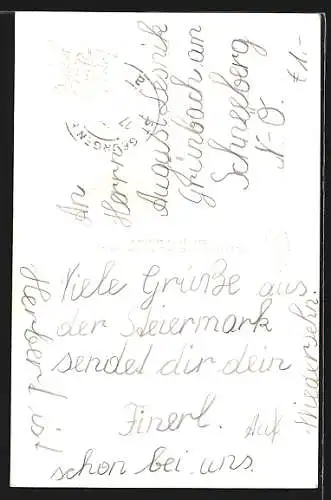 Viele Grüße aus
der Steiermark
sendet dir dein
Finerl. Auf
Wiedersehn.
Herbert ist
schon bei uns.
An
Herrn
August
Grünbach am
Schneeberg
N-Ö.
ST. GEORGEN
€ 1.-